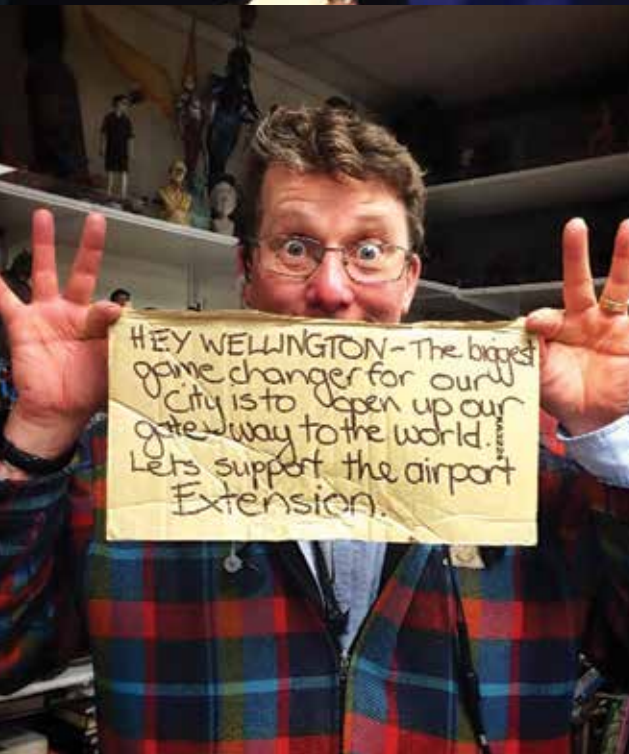 HEY WELLINGTON - The biggest
game changer for our
City is to open up our
gate way to the world.
Lets support the airport
Extension.